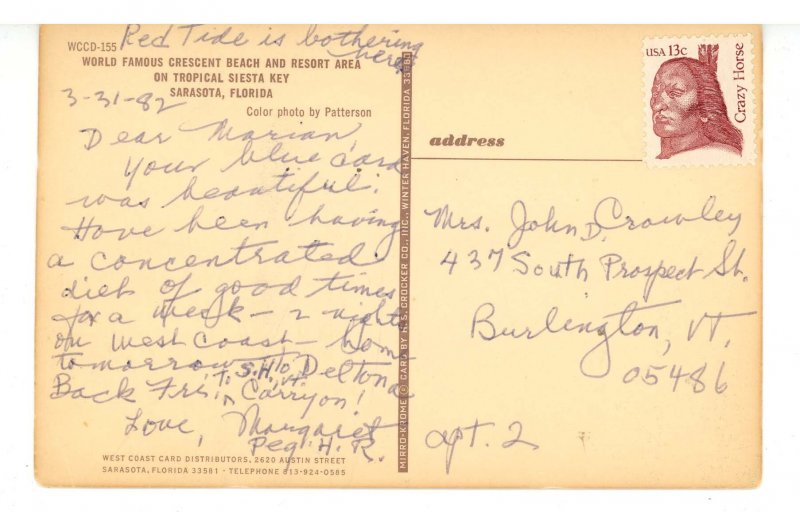 Red Tide is bothering
here
WCCD-155
WORLD FAMOUS CRESCENT BEACH AND RESORT AREA
ON TROPICAL SIESTA KEY
SARASOTA, FLORIDA
Color photo by Patterson
3-31-82
Dear Marian,
Your blue card
was beautiful.
Have been having
a concentrated
diet of good times
for a week - 2 nights
on West Coast - home
tomorrow to Deltona
Back Fri.
Carry on!
Love, Margaret
Peg. H. R.
WEST COAST CARD DISTRIBUTORS, 2620 AUSTIN STREET
SARASOTA, FLORIDA 33581 - TELEPHONE 813-924-0585
MIRRO-KROME ® CARD BY H. S. CROCKER CO., INC., WINTER HAVEN, FLORIDA 33881
USA 13c
Crazy Horse
address
Mrs. John D. Crowley
437 South Prospect St.
Burlington, VT.
05486
apt. 2